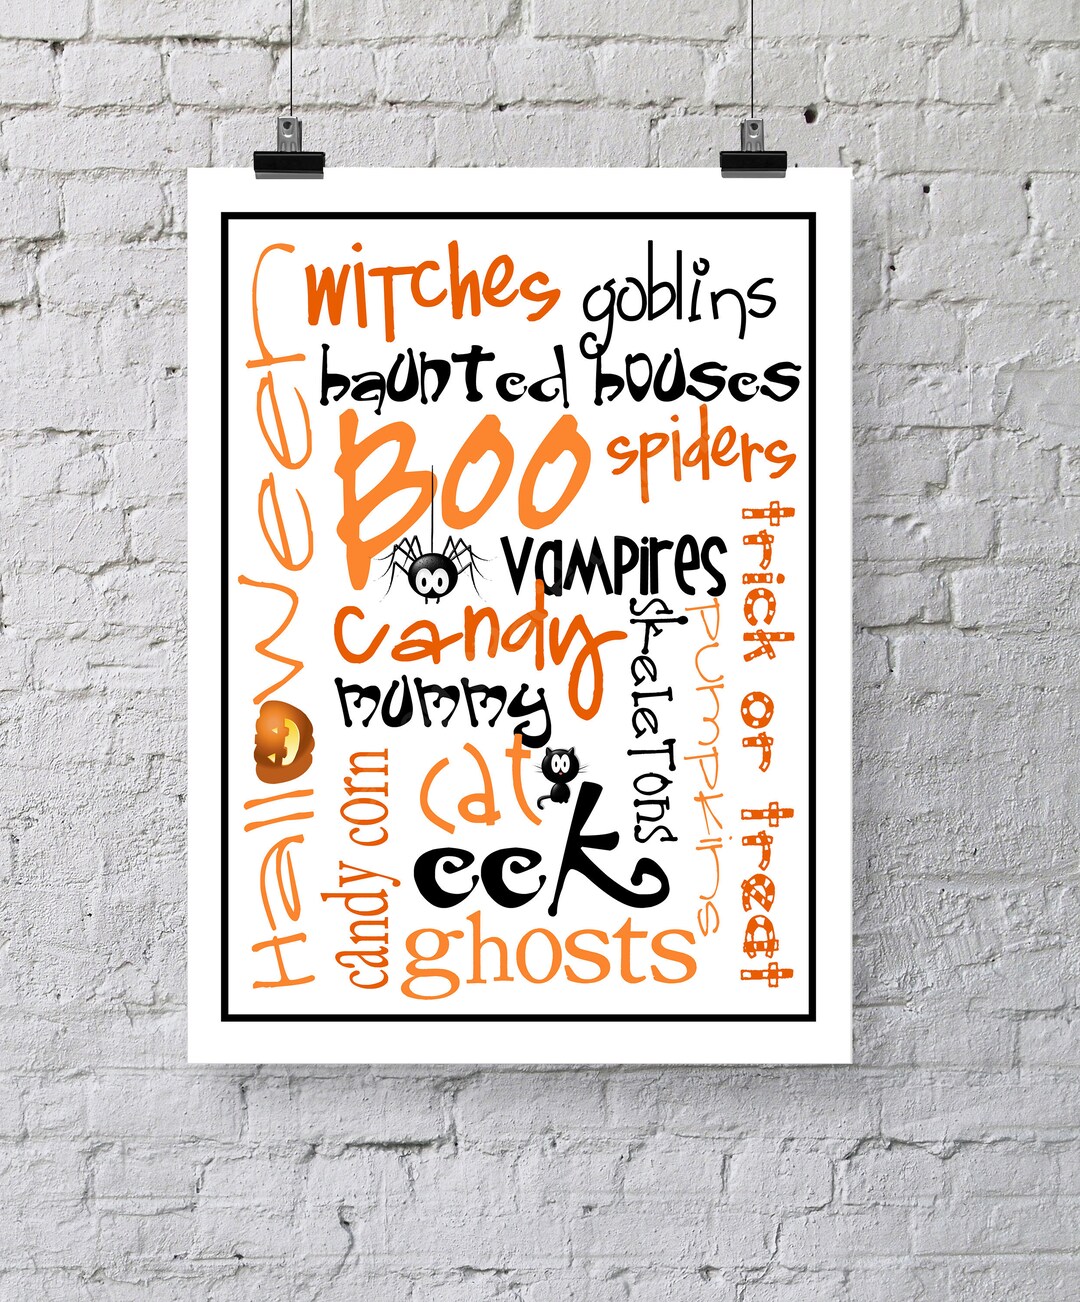 Halloween
witches
goblins
haunted houses
Boo
spiders
vampires
trick or treat
candy
skeletons
pumpkins
mummy
cat
candy corn
eek
ghosts